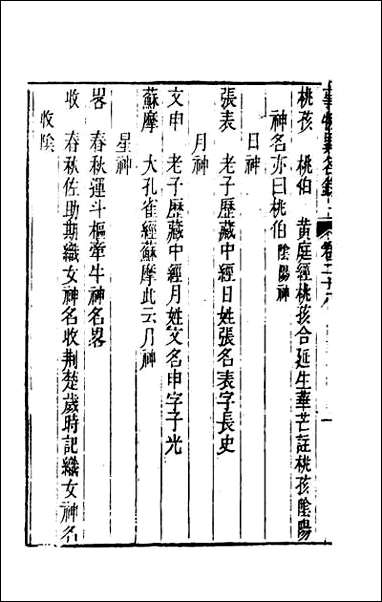 事物異名錄 卷二十八
桃孩 桃伯 黃庭經桃孩合延生華芒註桃孩陰陽
神名亦曰桃伯陰陽神
日神
張表 老子歷藏中經日姓張名表字長史
月神
文申 老子歷藏中經月姓文名申字子光
蘇摩 大孔雀經蘇摩此云月神
星神
畧 春秋運斗樞牽牛神名畧
收 春秋佐助期織女神名收荆楚歲時記織女神名
收陰